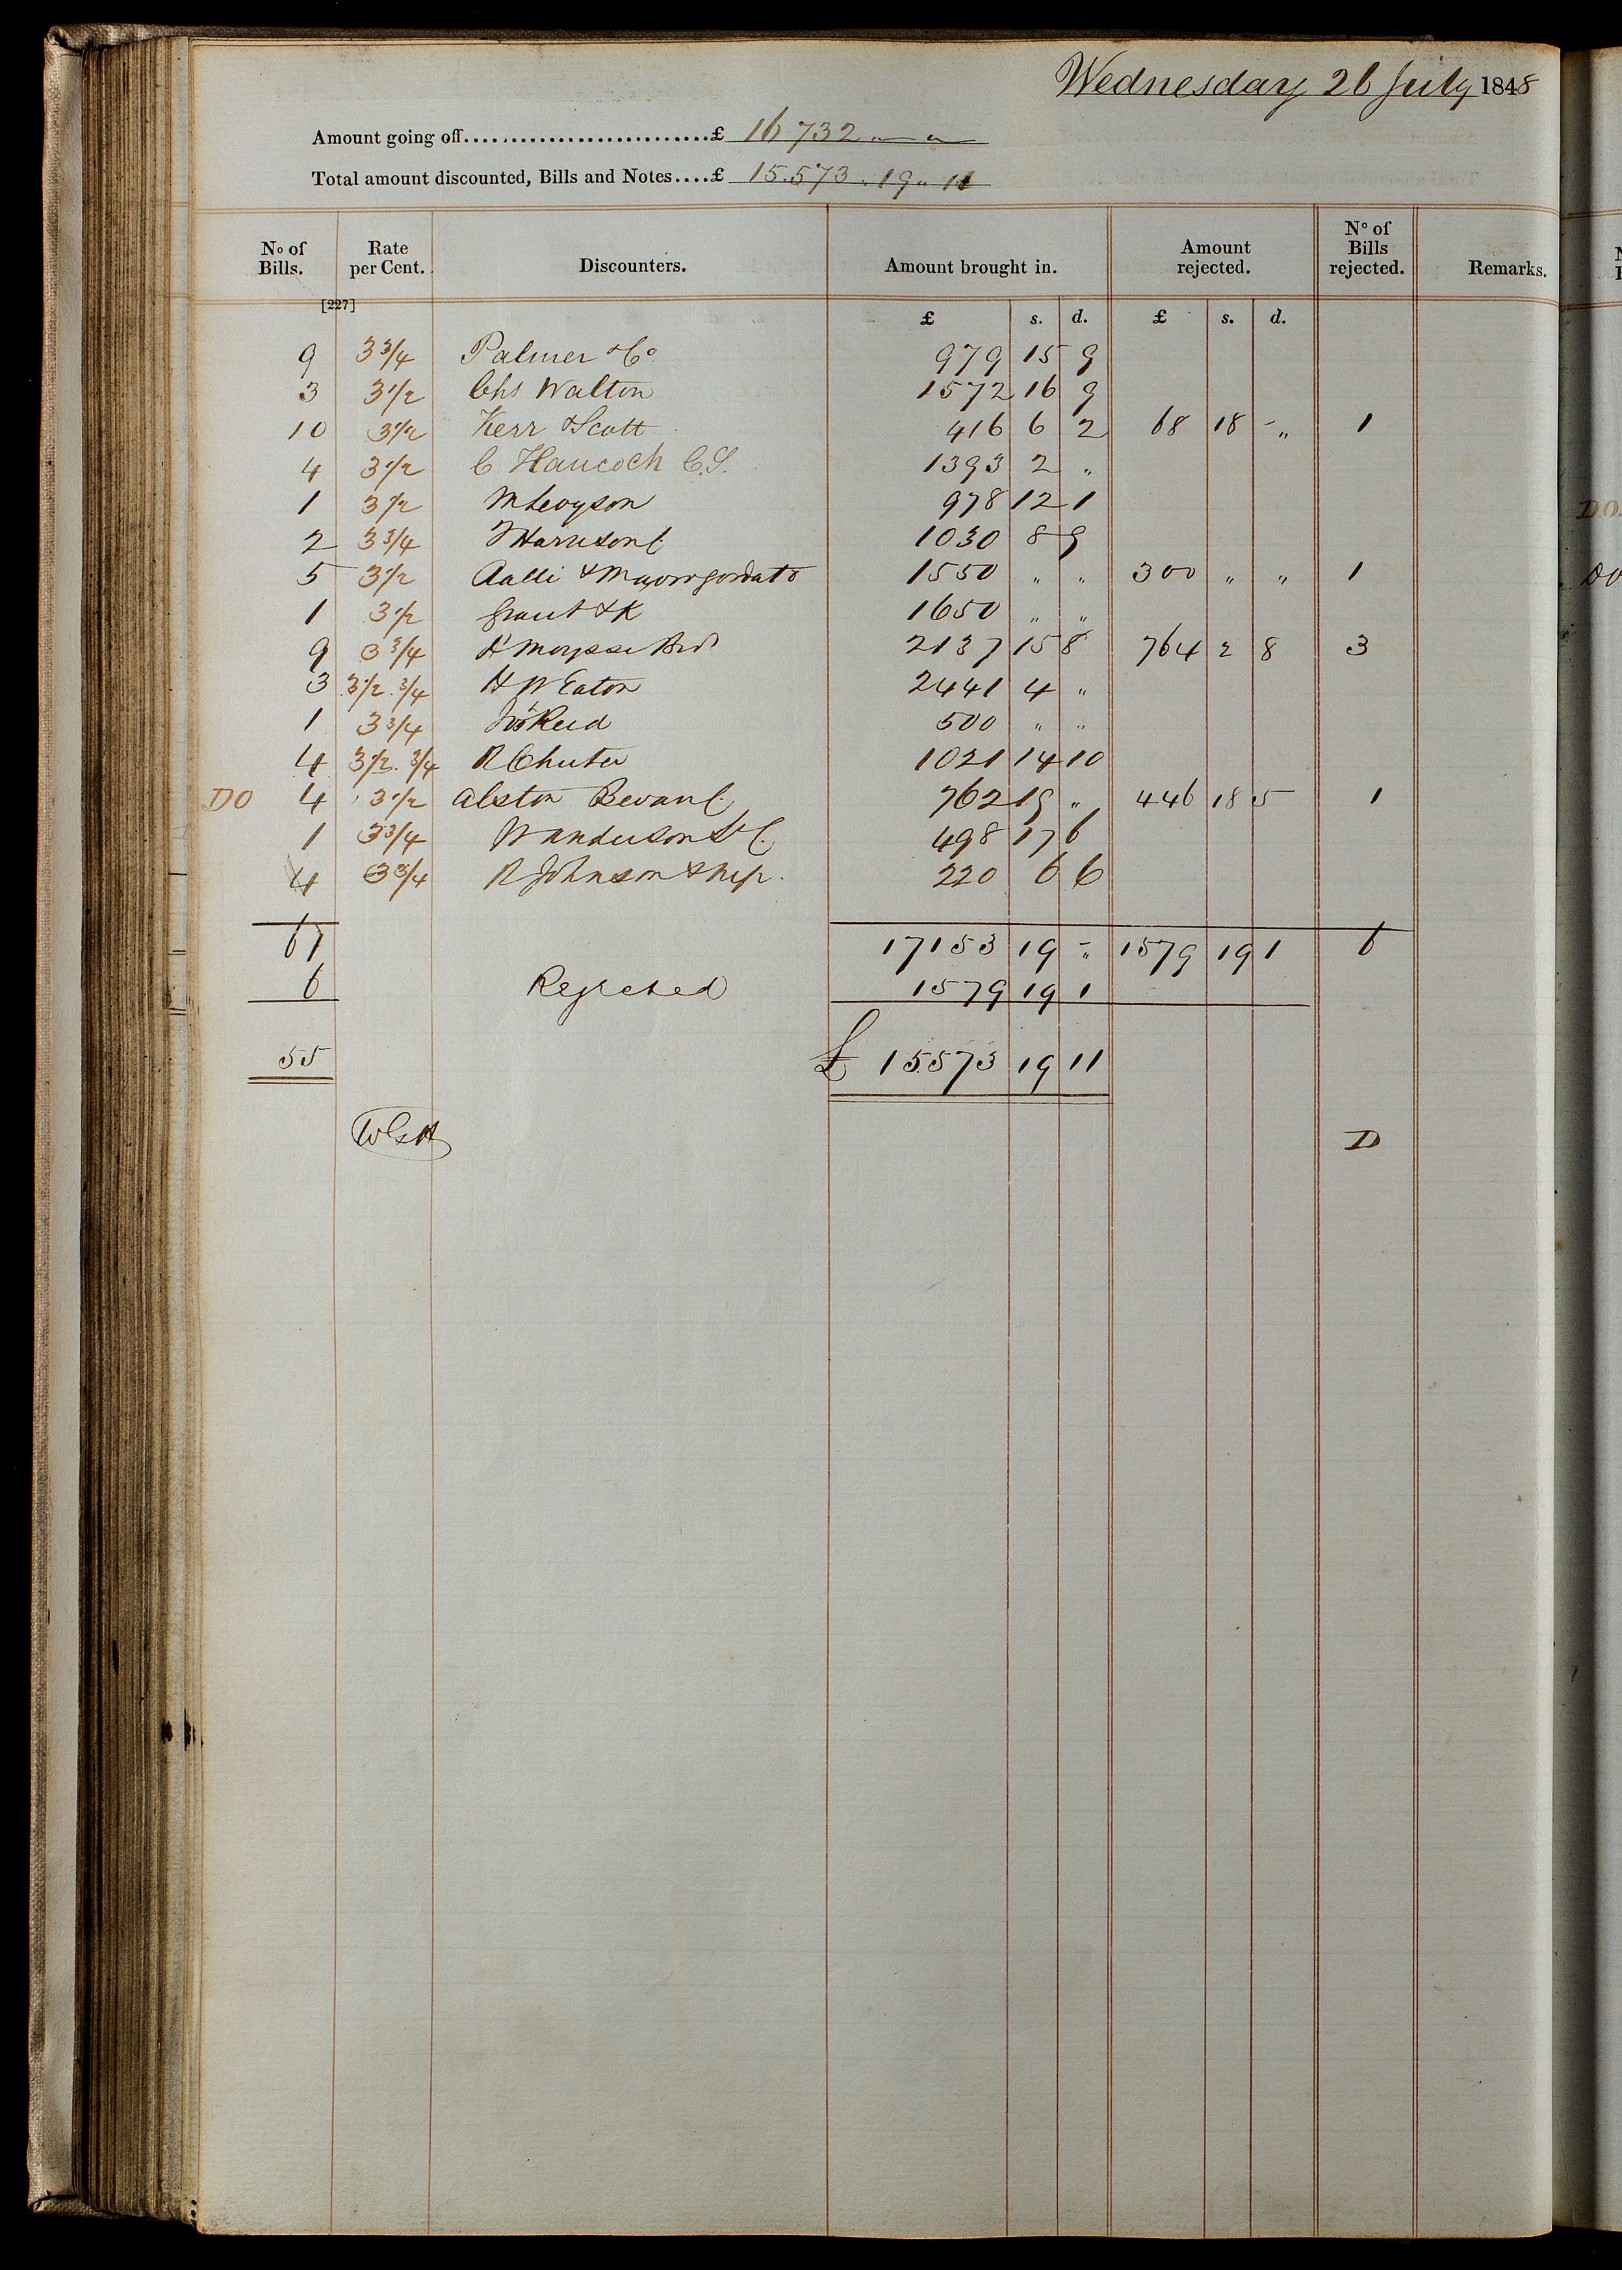 Wednesday 26 July 1848
Amount going off..........................£ 16732 " — "
Total amount discounted, Bills and Notes....£ 15.573 " 19 " 11
No of Bills. Rate per Cent. Discounters. Amount brought in. Amount rejected. No of Bills rejected. Remarks.
[227]
£ s. d. £ s. d.
9 3 3/4 Palmer & Co 979 15 9
3 3 1/2 Chs Walton 1572 16 9
10 3 1/2 Kerr & Scott 416 6 2 68 18 - " 1
4 3 1/2 C Hancock C.S. 1393 2 "
1 3 1/2 M Levyson 978 12 1
2 3 3/4 T Harrison C. 1030 8 9
5 3 1/2 Ralli & Mavrogordato 1550 " " 300 " " 1
1 3 1/2 Grant & K 1650 " "
9 3 3/4 2137 15 8 764 2 8 3
3 3 1/2 . 3/4 H W Eaton 2441 4 "
1 3 3/4 Jno Reid 500 " "
4 3 1/2 . 3/4 R Chuter 1021 14 10
DO 4 3 1/2 Alston Bevan C. 762 19 " 446 18 5 1
1 3 3/4 W Anderson S & C. 498 17 6
4 3 3/4 R Johnson & nep. 220 6 6
61 17153 19 - " 1579 19 1 6
6 Rejected 1579 19 1
55 £ 15.573 19 11
D
DO
DO